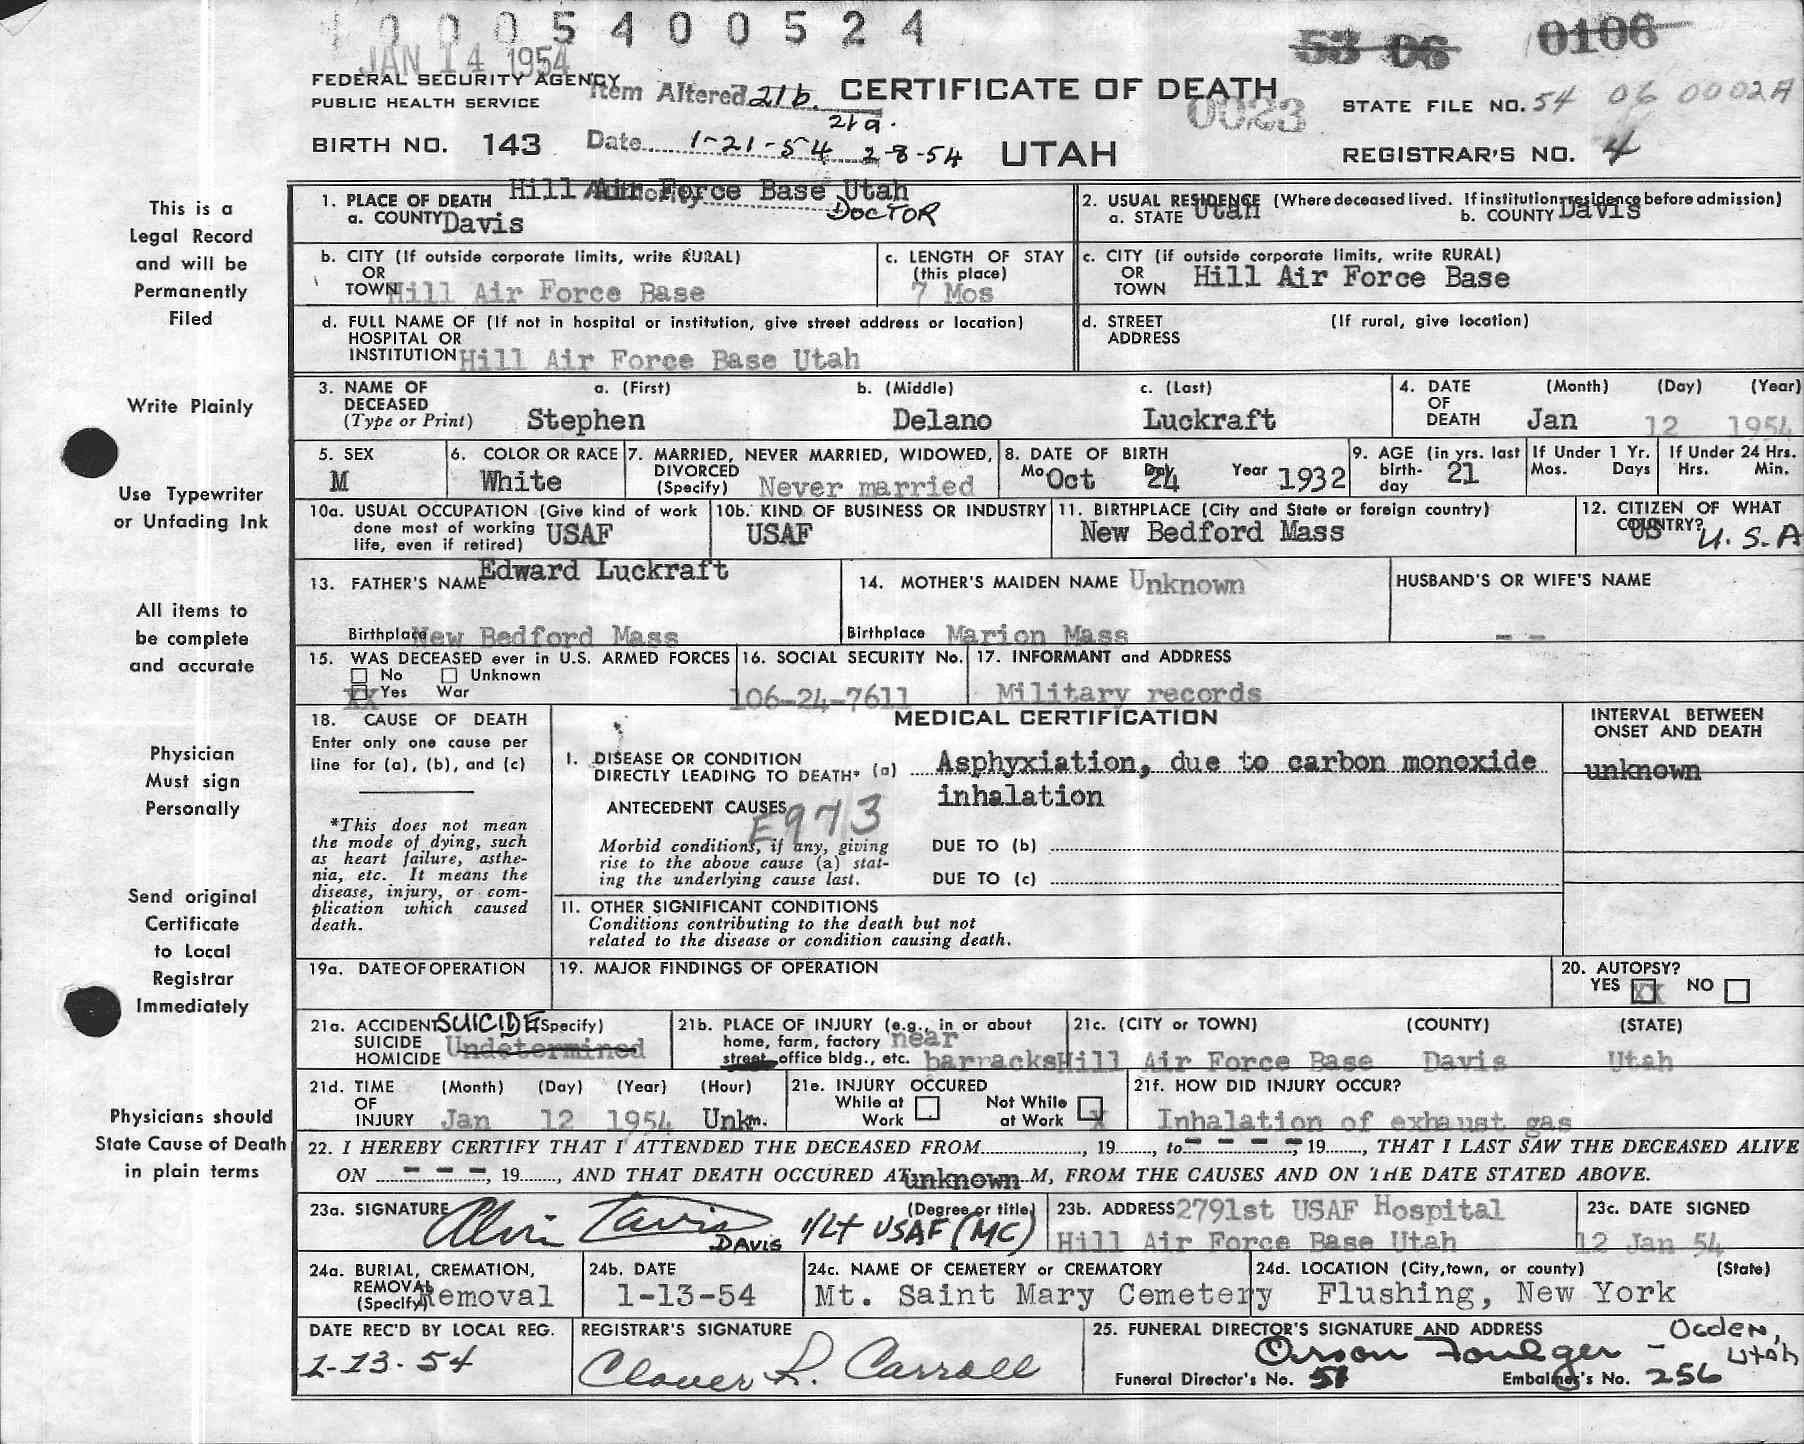 1 0 0 0 5 4 0 0 5 2 4
JAN 14 1954
53 06 0106
FEDERAL SECURITY AGENCY
PUBLIC HEALTH SERVICE
Item Altered 21b.
21a.
CERTIFICATE OF DEATH
0023
STATE FILE NO. 54 06 0002A
BIRTH NO. 143
Date 1-21-54 2-8-54
UTAH
REGISTRAR'S NO. 4
This is a
Legal Record
and will be
Permanently
Filed
Write Plainly
Use Typewriter
or Unfading Ink
All items to
be complete
and accurate
Physician
Must sign
Personally
Send original
Certificate
to Local
Registrar
Immediately
Physicians should
State Cause of Death
in plain terms
1. PLACE OF DEATH Hill Air Force Base Utah
Authority DOCTOR
a. COUNTY Davis
2. USUAL RESIDENCE (Where deceased lived. If institution residence before admission)
a. STATE Utah b. COUNTY Davis
b. CITY (If outside corporate limits, write RURAL)
OR
TOWN Hill Air Force Base
c. LENGTH OF STAY
(this place)
7 Mos
c. CITY (if outside corporate limits, write RURAL)
OR
TOWN Hill Air Force Base
d. FULL NAME OF (If not in hospital or institution, give street address or location)
HOSPITAL OR
INSTITUTION Hill Air Force Base Utah
d. STREET (If rural, give location)
ADDRESS
3. NAME OF DECEASED (Type or Print)
a. (First) b. (Middle) c. (Last)
Stephen Delano Luckraft
4. DATE OF DEATH (Month) (Day) (Year)
Jan 12 1954
5. SEX
M
6. COLOR OR RACE
White
7. MARRIED, NEVER MARRIED, WIDOWED,
DIVORCED
(Specify) Never married
8. DATE OF BIRTH
Mo Oct Day 24 Year 1932
9. AGE (in yrs. last
birth-
day 21
If Under 1 Yr.
Mos. Days
If Under 24 Hrs.
Hrs. Min.
10a. USUAL OCCUPATION (Give kind of work
done most of working
life, even if retired) USAF
10b. KIND OF BUSINESS OR INDUSTRY
USAF
11. BIRTHPLACE (City and State or foreign country)
New Bedford Mass
12. CITIZEN OF WHAT
COUNTRY? US U.S.A
13. FATHER'S NAME Edward Luckraft
Birthplace New Bedford Mass
14. MOTHER'S MAIDEN NAME Unknown
Birthplace Marion Mass
HUSBAND'S OR WIFE'S NAME
- -
15. WAS DECEASED ever in U.S. ARMED FORCES
No Unknown
XX Yes War
16. SOCIAL SECURITY No.
106-24-7611
17. INFORMANT and ADDRESS
Military records
18. CAUSE OF DEATH
Enter only one cause per
line for (a), (b), and (c)
*This does not mean
the mode of dying, such
as heart failure, asthe-
nia, etc. It means the
disease, injury, or com-
plication which caused
death.
MEDICAL CERTIFICATION
I. DISEASE OR CONDITION
DIRECTLY LEADING TO DEATH* (a) Asphyxiation, due to carbon monoxide
inhalation
ANTECEDENT CAUSES
E973
Morbid conditions, if any, giving
rise to the above cause (a) stat-
ing the underlying cause last.
DUE TO (b)
DUE TO (c)
II. OTHER SIGNIFICANT CONDITIONS
Conditions contributing to the death but not
related to the disease or condition causing death.
INTERVAL BETWEEN
ONSET AND DEATH
unknown
19a. DATE OF OPERATION
19. MAJOR FINDINGS OF OPERATION
20. AUTOPSY?
YES XX NO
21a. ACCIDENT SUICIDE (Specify)
SUICIDE
HOMICIDE Undetermined
21b. PLACE OF INJURY (e.g., in or about
home, farm, factory near
street, office bldg., etc. barracks
21c. (CITY or TOWN) (COUNTY) (STATE)
Hill Air Force Base Davis Utah
21d. TIME OF INJURY (Month) (Day) (Year) (Hour)
Jan 12 1954 Unk m.
21e. INJURY OCCURED
While at Work Not While at Work X
21f. HOW DID INJURY OCCUR?
Inhalation of exhaust gas
22. I HEREBY CERTIFY THAT I ATTENDED THE DECEASED FROM, 19, to - - - -, 19, THAT I LAST SAW THE DECEASED ALIVE
ON - - -, 19, AND THAT DEATH OCCURED AT unknown M, FROM THE CAUSES AND ON THE DATE STATED ABOVE.
23a. SIGNATURE (Degree or title)
Alvin Davis 1/Lt USAF (MC)
DAVIS
23b. ADDRESS 2791st USAF Hospital
Hill Air Force Base Utah
23c. DATE SIGNED
12 Jan 54
24a. BURIAL, CREMATION,
REMOVAL
(Specify) Removal
24b. DATE
1-13-54
24c. NAME OF CEMETERY or CREMATORY
Mt. Saint Mary Cemetery
24d. LOCATION (City, town, or county) (State)
Flushing, New York
DATE REC'D BY LOCAL REG.
1-13-54
REGISTRAR'S SIGNATURE
Clover R. Carroll
25. FUNERAL DIRECTOR'S SIGNATURE AND ADDRESS
Orson Foulger - Ogden, Utah
Funeral Director's No. 51 Embalmer's No. 256